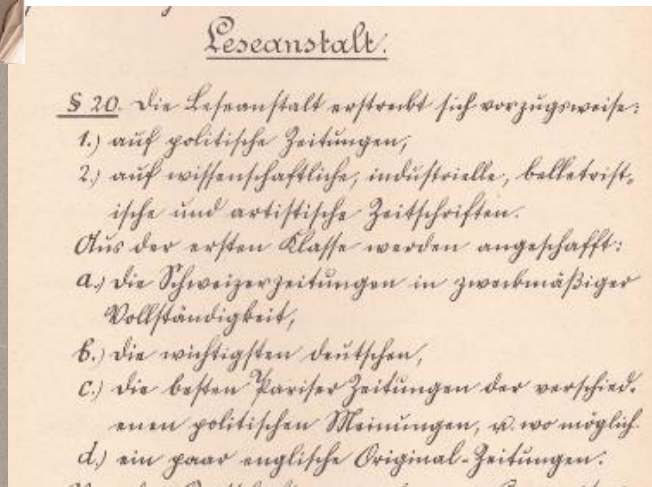 Leseanstalt.
§ 20. Die Leseanstalt erstreckt sich vorzugsweise:
1.) auf politische Zeitungen,
2.) auf wissenschaftliche, industrielle, belletrist-
ische und artistische Zeitschriften.
Aus der ersten Klasse werden angeschafft:
a.) die Schweizerzeitungen in zweckmäßiger
Vollständigkeit,
b.) die wichtigsten deutschen,
c.) die besten Pariser Zeitungen der verschied-
enen politischen Meinungen, u. wo möglich
d.) ein paar englische Original-Zeitungen.